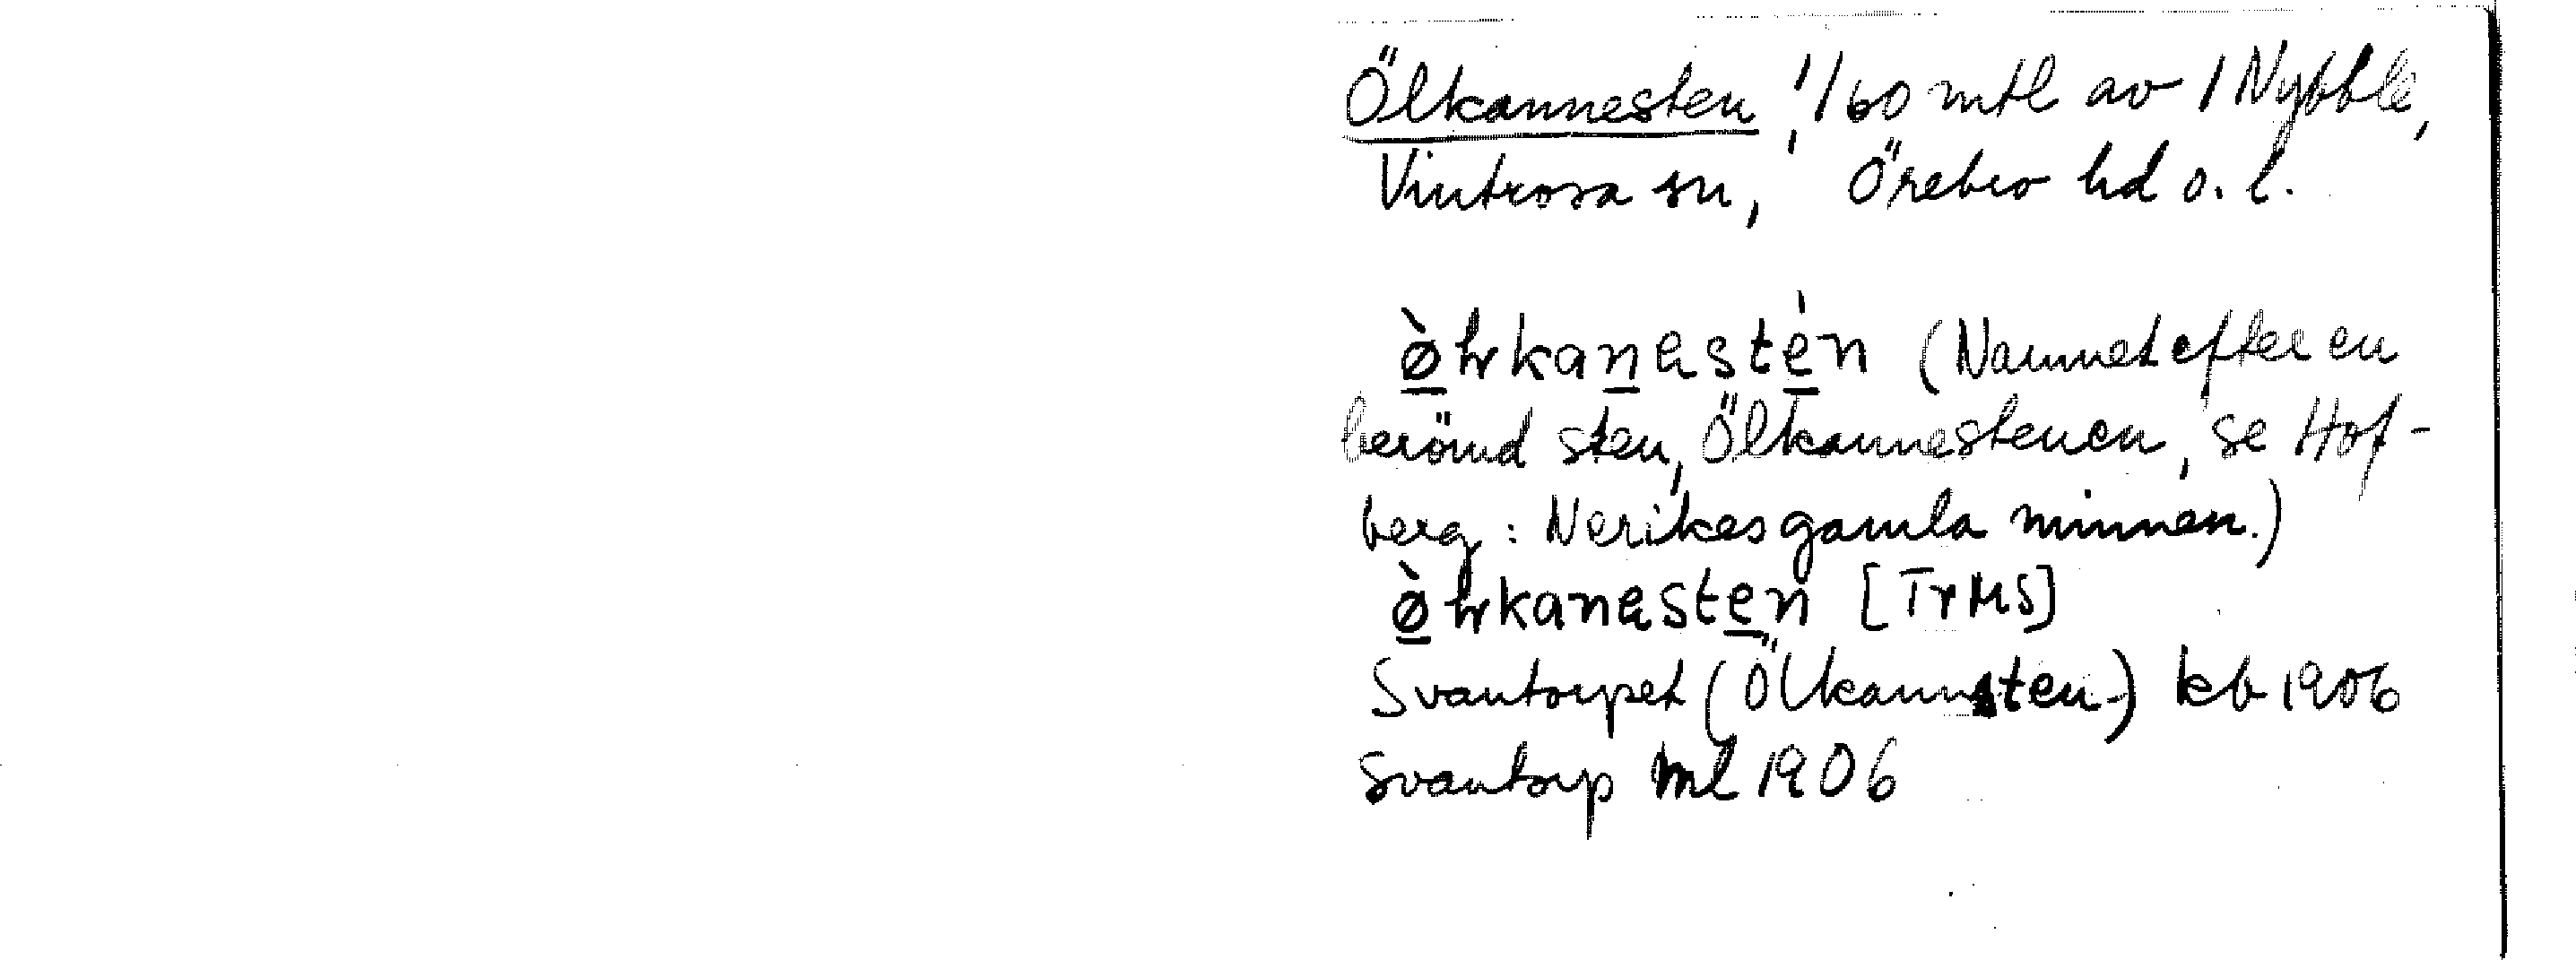 Ölkannesten, 1/60 mtl av 1 Nybble,
Vintrosa sn, Örebro hd o. l.
(Namnet efter en
berömd sten, Ölkannestenen, se Hof-
berg: Nerikes gamla minnen.)
[TrMS]
Svantorpet (Ölkannsten) kb 1906
Svantorp ml 1906